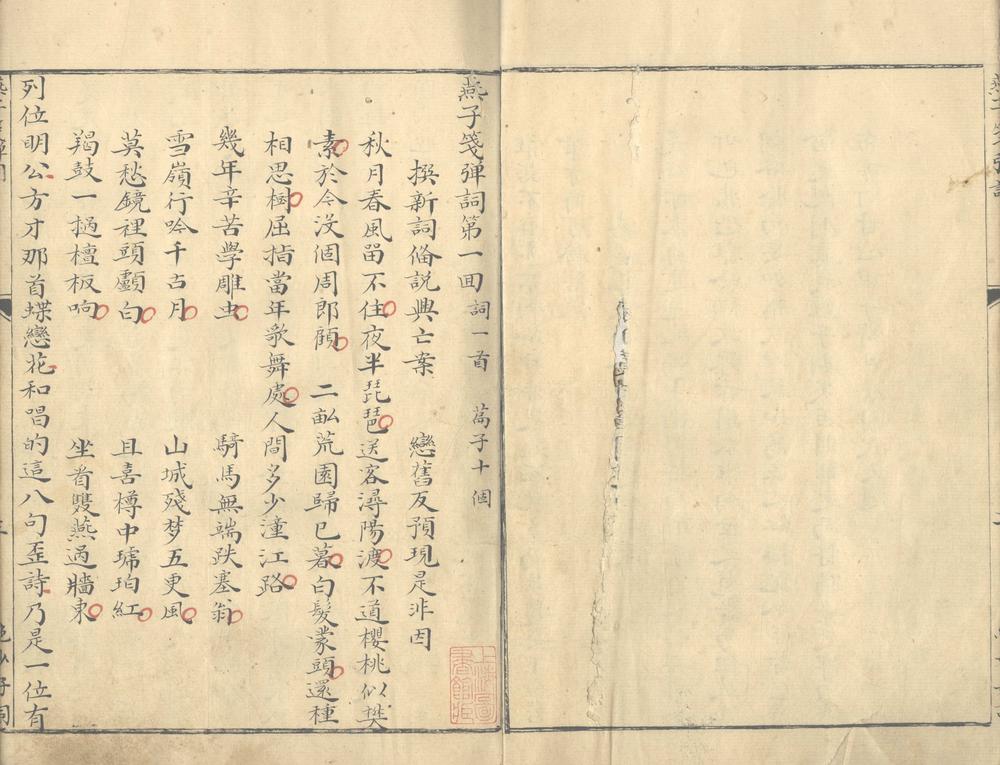 燕子箋弹詞第一囬 詞一首 萵子十個
撰新詞俻説興亡案 戀舊友預現是非因
秋月春風畄不住夜半琵琶送客潯陽渡不道櫻桃似樊
素於今没個周郎顧 二畝荒園歸已暮白髪蒙頭還種
相思樹屈指當年歌舞處人間多少潼江路
幾年辛苦學雕虫 騎馬無端跌塞翁
雪嶺行吟千古月 山城殘梦五更風
莫愁鏡裡頭顱白 且喜樽中琥珀紅
羯鼓一撾檀板响 坐看雙燕過牆東
列位明公方才那首蝶戀花和唱的這八句歪詩乃是一位有